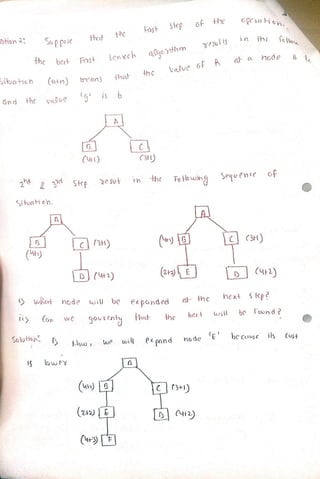 Suppose that the first step of the operation,
the best first search algorithm results in the follow
Situation (a+n) means that the value of h at a node is
and the value 'g' is b
A
B C
(4+1) (3+1)
2nd & 3rd step result in the following sequence of
Situation.
A A
B C (3+1) (4+1) B C (3+1)
(4+1)
D (4+2) (2+2) E D (4+2)
i) what node will be expanded at the next step?
ii) Can we that the best will be found?
Solution: i) Now, we will expand node 'E' because its cost
is lower
A
(4+1) B C (3+1)
(2+2) E D (4+2)
(4+3) F